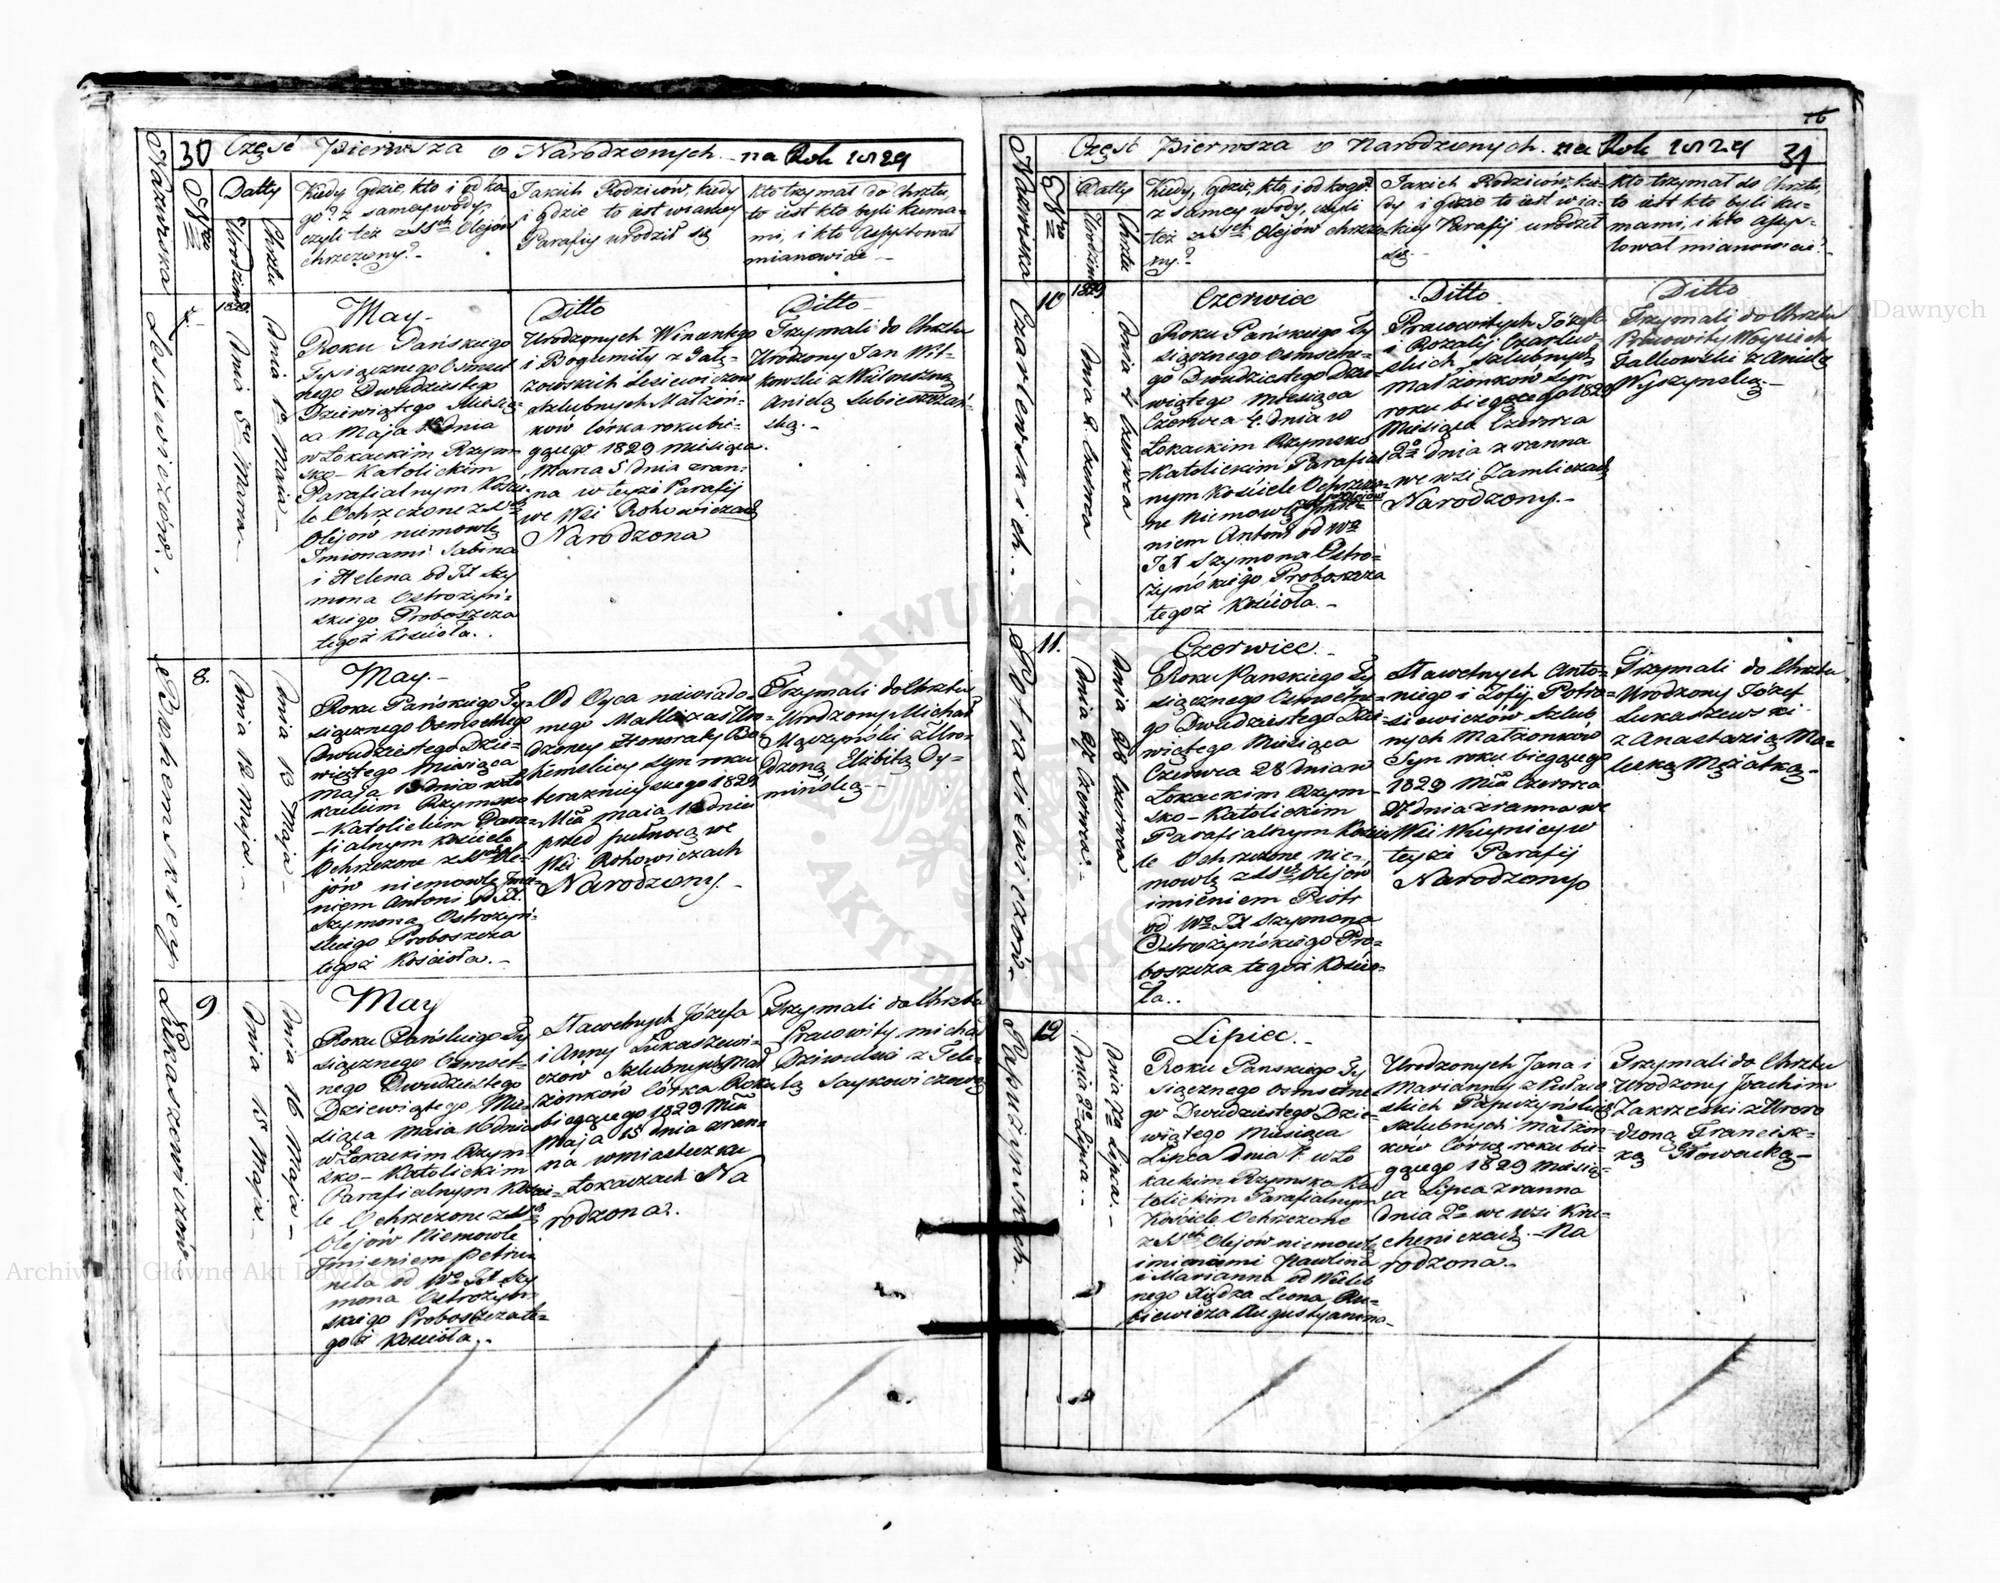 30 Część Pierwsza o Narodzonych na Rok 1829
Nazwiska
Nro
Datty
Urodzin
Chrztu
Kiedy gdzie, kto i od ko-
go? z samey wody,
czyli też z SSch Olejów
chrzczony?-
Jakich Rodziców, kiedy
i gdzie to iest w iakiey
Parafij urodził się
kto trzymał do Chrztu,
to iest kto byli kuma-
mi, i kto assystował
mianowicie -
1829
Dnia 5o Marca -
Dnia 1o Maia -
May -
Roku Pańskiego
Tysiącznego Osmset
nego Dwudziestego
Dziewiątego Miesią-
ca Maja dnia
w Łokackim Rzym-
sko - Katolickim
Parafialnym Koście-
le Ochrzczone z SSch
Olejów niemowlę
Imionami Sabina
i Helena od JX Szy
mona Ostrożyń-
skiego Proboszcza
tegoż Kościoła.
Ditto
Urodzonych Wincentego
i Bogumiły z
Lesiewiczów
Szlubnych Małżon-
ków Córka roku bie-
gącego 1829 Miesiąca
Marca 5 dnia zran-
na w teyże Parafij
we Wsi Rohowiczach
Narodzona
Ditto -
Trzymali do Chrztu
Urodzony Jan Wit-
kowski z Wielmożną
Anielą Lubieszczań-
ską. -
8.
Dnia 12 Maja. -
Dnia 13 Maja. -
May. -
Roku Pańskiego Ty-
siącznego Osmsetnego
Dwudziestego Dzie-
wiątego Miesiąca
Maja 13 dnia w Ło-
kackim Rzymsko
- Katolickim Para-
fialnym Kościele
Ochrzczone z SSch Ole-
jów niemowlę Imie-
niem Antoni od JX.
Szymona Ostrożyń-
skiego Proboszcza
tegoż Kościoła. -
Od Oyca niewiado-
mego Matki zaś Uro-
dzoney Honoraty Bo-
hemskiey Syn roku
teraznieyszego 1829
Mca maia 12 dnia
przed pułnocą we
Wsi Rohowiczach
Narodzony. -
Trzymali do Chrztu
Urodzony Michał
Mączyński z Uro-
dzoną Elżbietą Dy-
mińską. -
Łukaszewiczów
9
Dnia 15 Maja -
Dnia 16 Maja -
May
Roku Pańskiego Ty
siącznego Osmset-
nego Dwudziestego
Dziewiątego Mie-
siąca Maia 16 dnia
w Łokackim Rzym-
sko - Katolickim
Parafialnym Kości-
le Ochrzczone z SSch
Olejów Niemowle
Imieniem Petru-
nela od Wo JX Szy
mona Ostrożyń-
skiego Proboszcza te-
goż Kościoła. -
Sławetnych Józefa
i Anny Łukaszewi-
czów Szlubnych Mał
żonków Córka Roku
biegącego 1829 Mca
Maja 15 dnia zran-
na w miasteczku
Łokaczach Na
rodzona.
Trzymali do Chrztu
Pracowity Michał
Dziwulski z Tek-
lą Saykowiczową
Część Pierwsza o Narodzonych na Rok 1829 31
Nazwiska
Nro
Datty
Urodzin
Chrztu
Kiedy, gdzie, kto, i od kogo?
z samey wody, czyli
też z SSch Olejów chrzczo-
ny?
Jakich Rodziców, kie-
dy i gdzie to iest w ia-
kiey Parafij urodził
się -
kto trzymał do Chrztu,
to iest kto byli ku-
mami, i kto assys-
tował mianowicie?
Czarlewskich. -
10
1829
Dnia 2 Czerwca
Dnia 4 Czerwca
Czerwiec
Roku Pańskiego Ty
siącznego Osmsetne-
go Dwudziestego Dzie
wiątego Miesiąca
Czerwca 4. dnia w
Łokackim Rzymsko
-Katolickim Parafial
nym Kościele Ochrzczo-
ne Niemowlę Imie-
niem Antoni od Wo
JX Szymona Ostro-
żyńskiego Proboszcza
tegoż Kościoła. -
Ditto
Pracowitych Józefa
i Rozalij Czarlew-
skich Szlubnych
Małżonków Syn
roku biegącego 1829
Miesiąca Czerwca
2o dnia z ranna
we wsi Zamliczach
Narodzony. -
Ditto
Trzymali do Chrztu
Pracowity Woyciech
Falkowski z Anielą
Wyszyńską. -
11.
Dnia 27 Czerwca. -
Dnia 28 Czerwca
Czerwiec. -
Roku Panskiego Ty
siącznego Osmsetne-
go Dwudziestego Dzie
wiątego Miesiąca
Czerwca 28 dnia w
Łokackim Rzym-
sko - Katolickim
Parafialnym Koście
le Ochrzczone nie-
mowlę z SSch Olejów
imieniem Piotr
od Wo JX Szymona
Ostrożyńskiego Pro-
boszcza tegoż Koście-
ła..
Sławetnych Anto-
niego i Zofij Piotra-
siewiczów Szlub-
nych Małżonków
Syn roku biegącego
1829 Mca Czerwca
27 dnia zranna we
Wsi w
teyże Parafij
Narodzony
Trzymali do Chrztu
Urodzony Józef
Łukaszewski
z Anastazią Ma-
łecką Mężatką -
12
Dnia 2o Lipca. -
Dnia 7o Lipca. -
Lipiec. -
Roku Panskiego Ty
siącznego osmsetne
go Dwudziestego Dzie-
wiątego Miesiąca
Lipca dnia 7. w Ło
kackim Rzymsko Ka
tolickim Parafialnym
Kościele Ochrzczone
z SSch Olejow niemowlę
imionami Paulina
i Marianna od Wieleb
nego Xiędza Leona Ru-
biewicza Augustyanina -
Urodzonych Jana i
Marianny z
skich Papużyńskich
Szlubnych Małżon-
ków Córka roku bie-
gącego 1829 Miesią-
ca Lipca zranna
dnia 2o we wsi Kru-
cheniczach. - Na
rodzona. -
Trzymali do Chrztu
Urodzony Joachim
Zakrzeski z Uro
dzoną Francisz-
ką Głowacką -
Archiwum Główne Akt Dawnych
Archiwum Główne Akt Dawnych